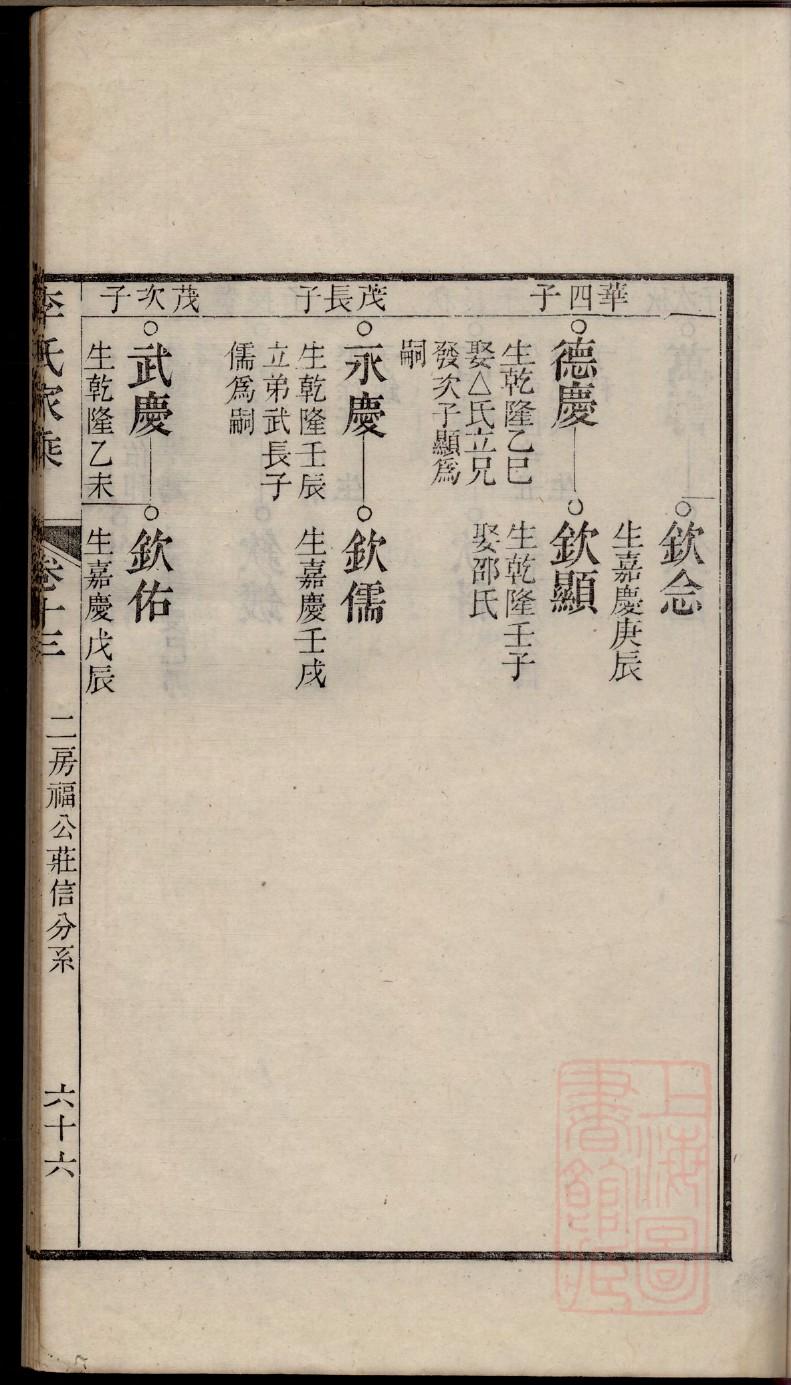 欽念
生嘉慶庚辰
華四子
德慶
生乾隆乙巳
娶△氏立兄
發次子顯爲
嗣
欽顯
生乾隆壬子
娶邵氏
茂長子
永慶
生乾隆壬辰
立弟武長子
儒爲嗣
欽儒
生嘉慶壬戌
茂次子
武慶
生乾隆乙未
欽佑
生嘉慶戊辰
李氏家乘
卷十三
二房福公莊信分系
六十六
上海圖
書館藏